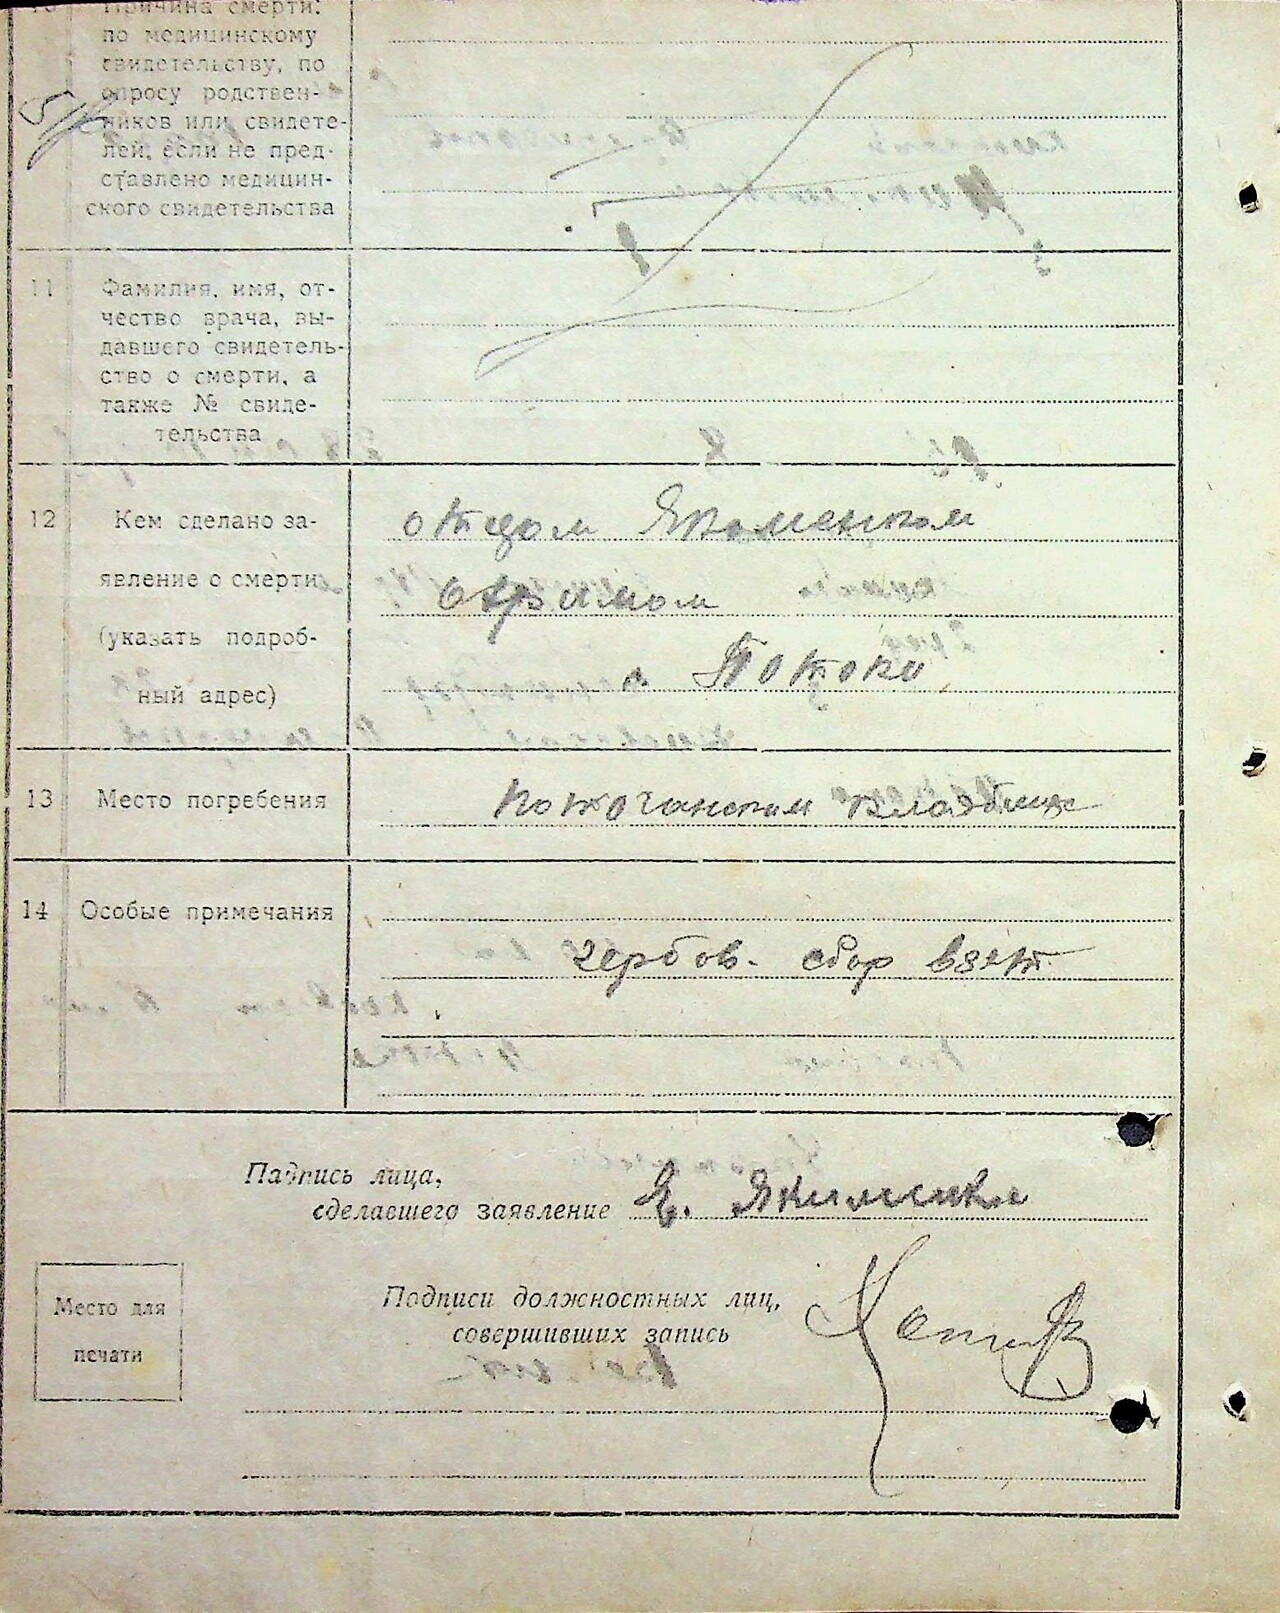 10 Причина смерти:
по медицинскому
свидетельству, по
опросу родствен-
ников или свидете-
лей, если не пред-
ставлено медицин-
ского свидетельства
11 Фамилия, имя, от-
чество врача, вы-
давшего свидетель-
ство о смерти, а
также № свиде-
тельства
12 Кем сделано за-
явление о смерти
(указать подроб-
ный адрес)
отцом
с. Потоки
13 Место погребения
Поточанском кладбище
14 Особые примечания
гербов. сбор взят
Падпись лица,
сделавшего заявление Е. Якименко
Подписи должностных лиц,
совершивших запись
Место для
печати